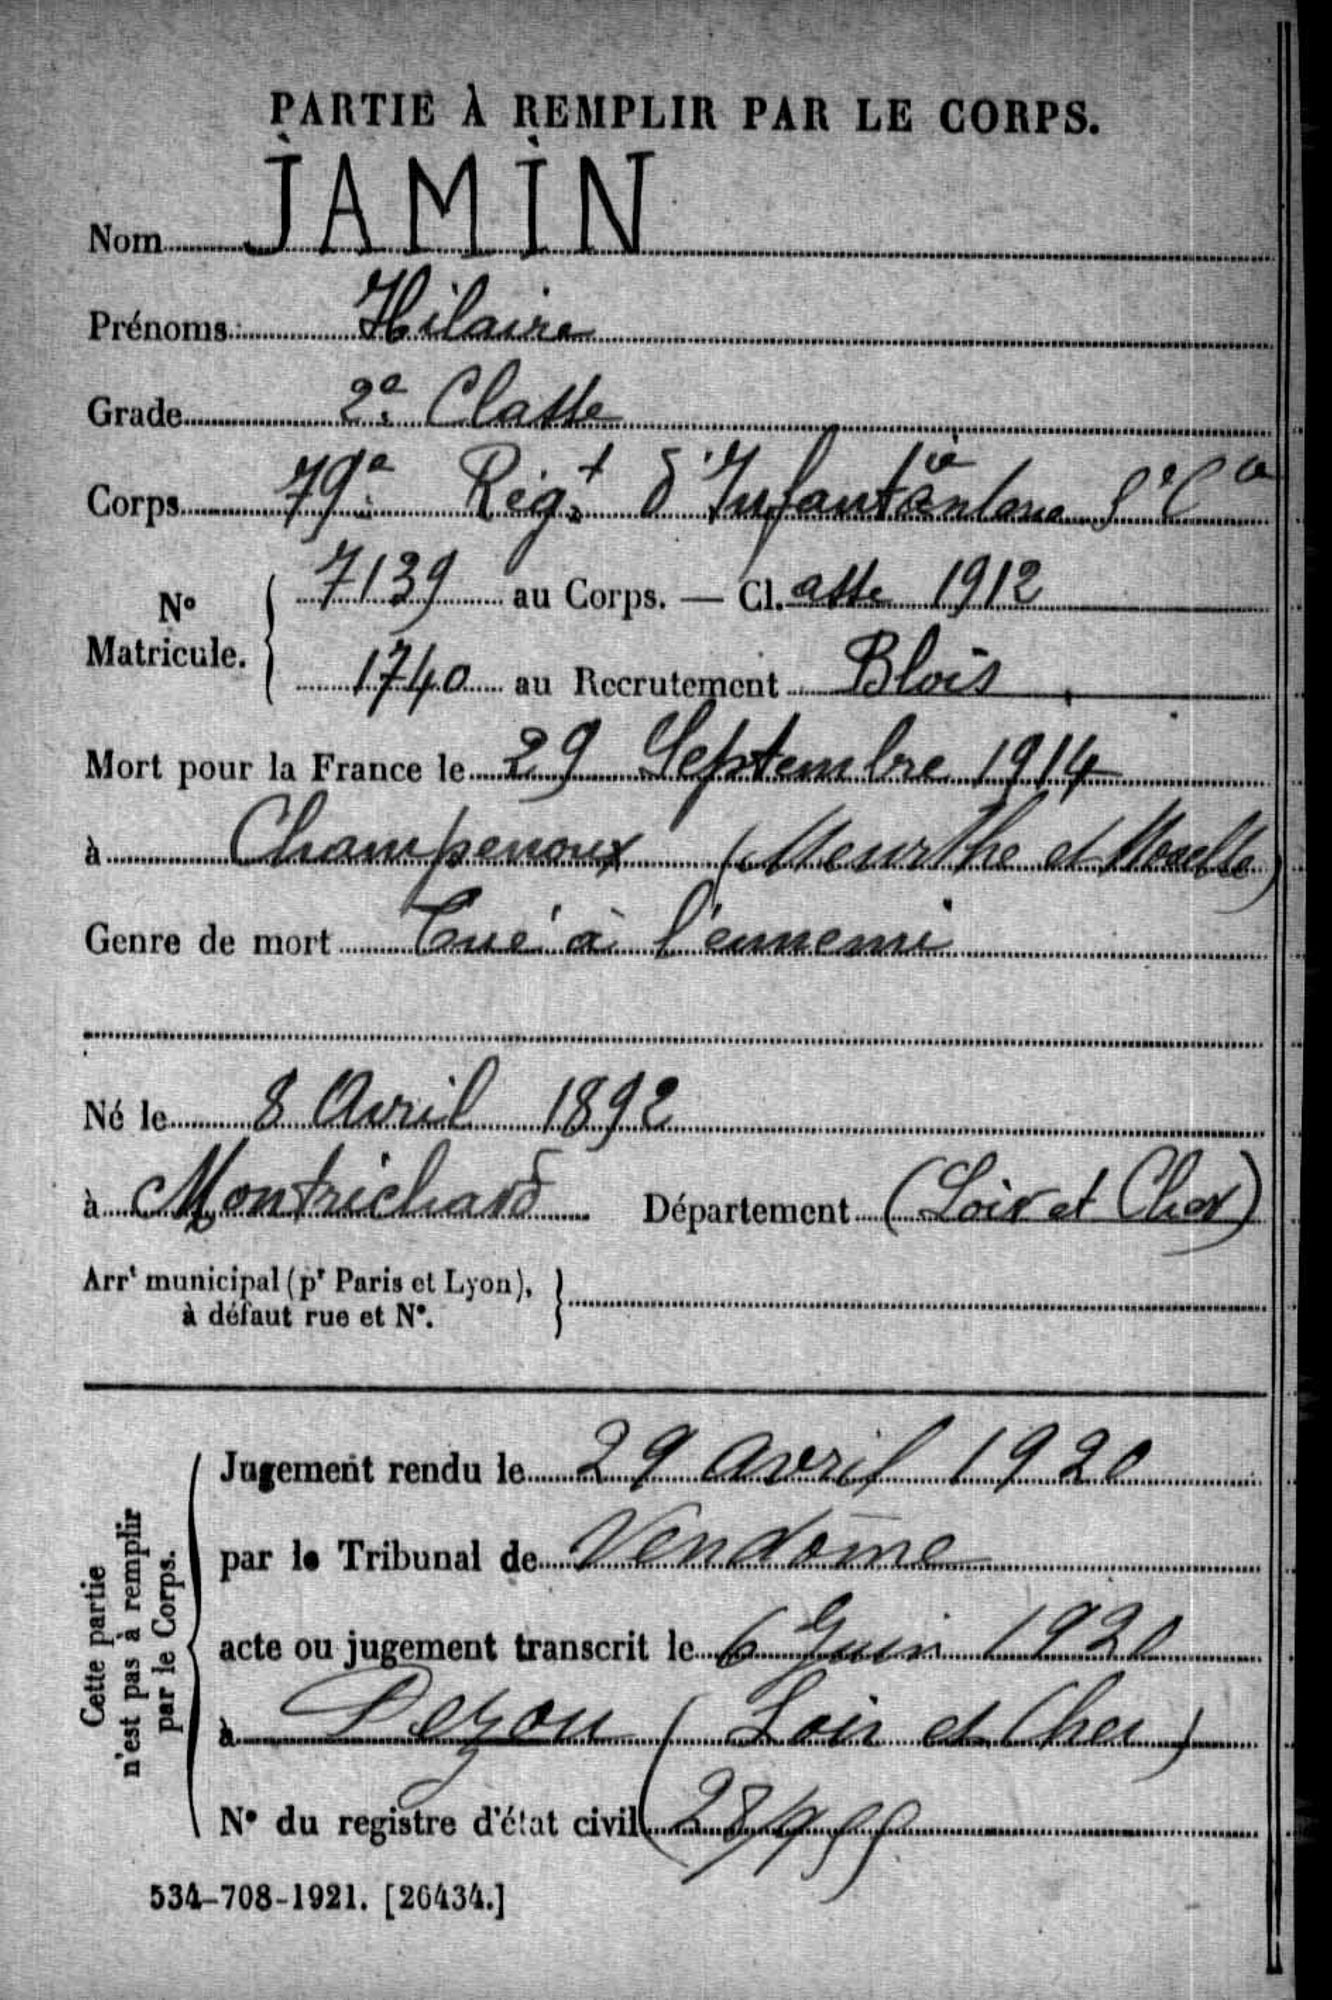 PARTIE À REMPLIR PAR LE CORPS.
Nom JAMIN
Prénoms: Hilaire
Grade 2e Classe
Corps 79e Régt d'Infanterie
7139 au Corps. — Cl.asse 1912
No Matricule.
1740 au Recrutement Blois
Mort pour la France le 29 Septembre 1914
à Champenoux (Meurthe et Moselle)
Genre de mort Tué à l'ennemi
Né le 8 Avril 1892
à Montrichard Département (Loir et Cher)
Arrt municipal (pr Paris et Lyon),
à défaut rue et No.
Cette partie
n'est pas à remplir
par le Corps.
Jugement rendu le 29 avril 1920
par le Tribunal de Vendôme
acte ou jugement transcrit le 6 Juin 1920
à Pezou (Loir et Cher)
No du registre d'état civil
534-708-1921. [26434.]